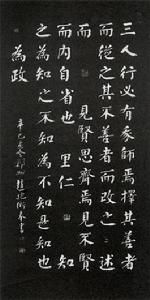 三人行必有我師焉擇其善者
而從之其不善者而改之 述
而 見賢思齊焉見不賢
而內自省也 里仁 知
之為知之不知為不知是知也
為政
辛巳
書